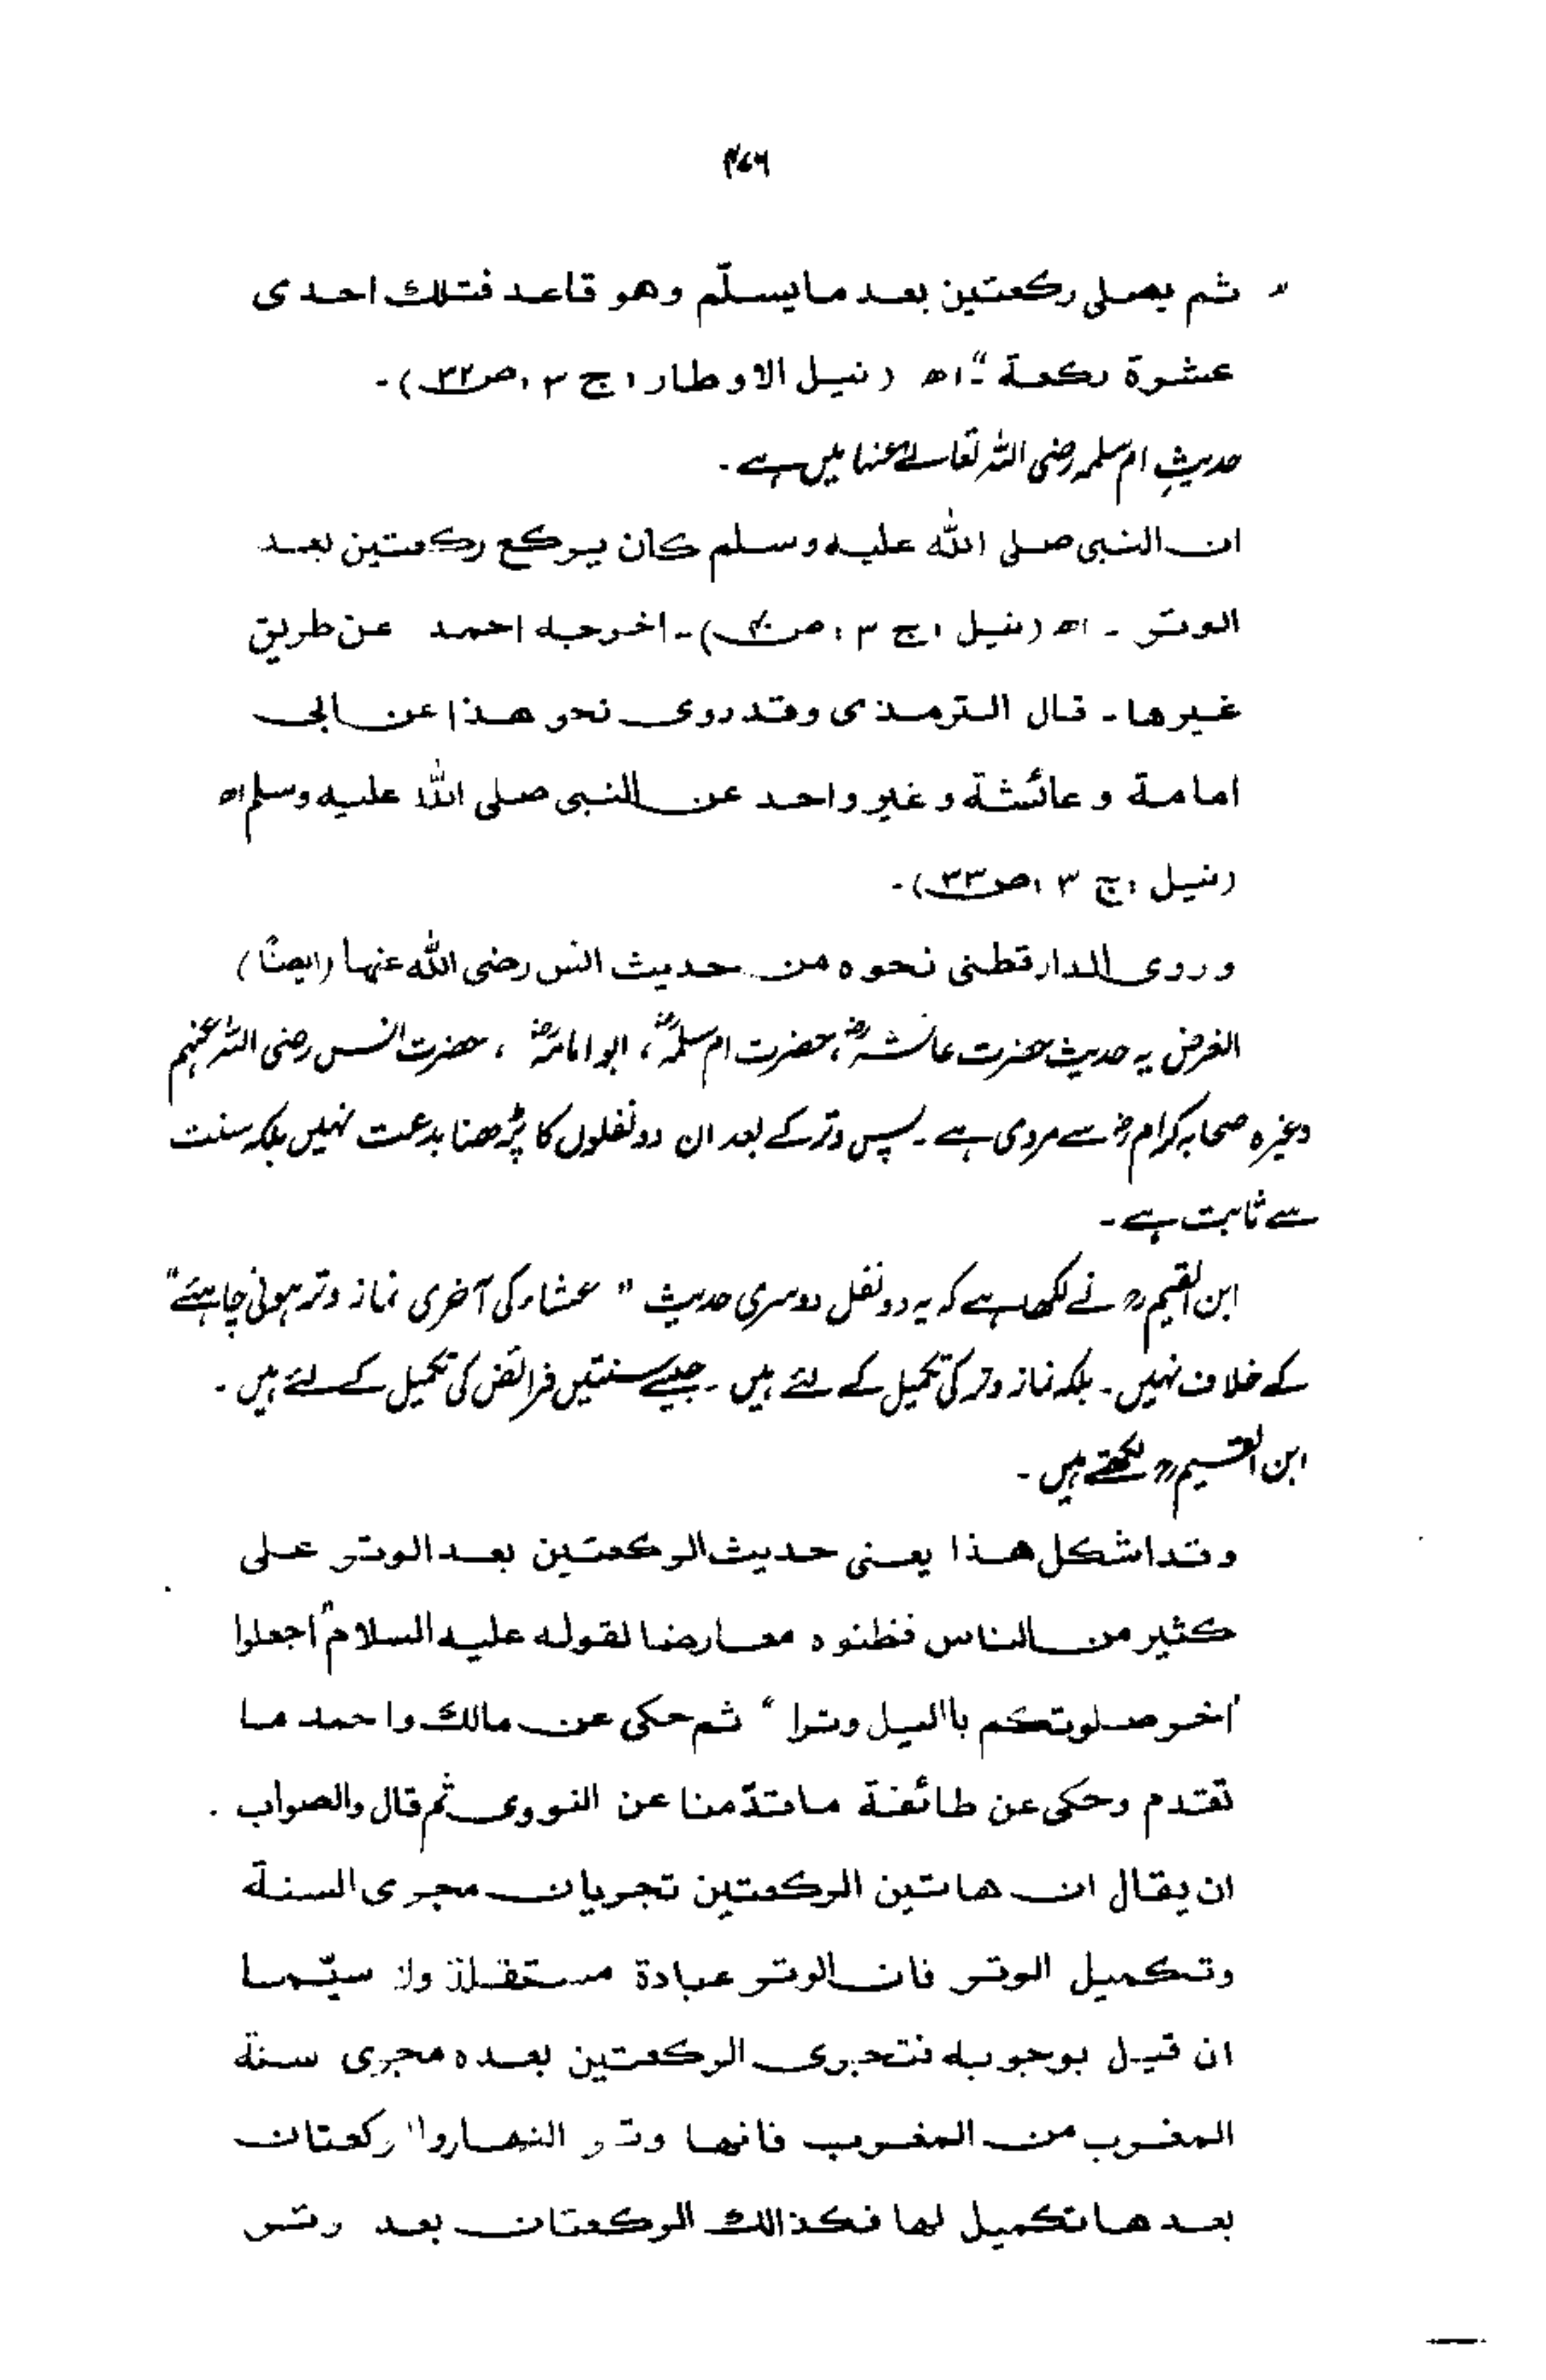 ۴۷۶
" ثم یصلی رکعتین بعد ما یسلّم وهو قاعد فتلك احدی
عشرة رکعة "۔ اھ (نیل الاوطار، ج ۳، ص ۳۲)۔
حدیثِ ام سلمہ رضی اللہ تعالےٰ عنہا میں ہے۔
ان النبی صلی الله علیه وسلم کان یرکع رکعتین بعد
الوتر۔ اھ (نیل، ج ۳، ص)۔ اخرجه احمد عن طریق
غیرها۔ قال الترمذی وقد روی نحو هذا عن ابی
امامة و عائشة و غیر واحد عن النبی صلی الله علیه وسلم اھ
(نیل، ج ۳، ص ۳۳)۔
وروی الدارقطنی نحوه من حدیث انس رضی الله عنہا (ایضًا)
الغرض یہ حدیث حضرت عائشہؓ، حضرت ام سلمہؓ، ابو امامہؓ، حضرت انس رضی اللہ عنہم
وغیرہ صحابہ کرامؓ سے مروی ہے۔ پس وتر کے بعد ان دو نفلوں کا پڑھنا بدعت نہیں بلکہ سنت
سے ثابت ہے۔
ابن القیمؒ نے لکھا ہے کہ یہ دو نفل دوسری حدیث " عشاء کی آخری نماز وتر ہونی چاہیئے"
کے خلاف نہیں۔ بلکہ نماز وتر کی تکمیل کے لئے ہیں۔ جیسے سنتیں فرائض کی تکمیل کے لئے ہیں۔
ابن القیمؒ لکھتے ہیں۔
وقد اشکل هذا یعنی حدیث الرکعتین بعد الوتر علی
کثیر من الناس فظنوه معارضا لقوله علیه السلام "اجعلوا
آخر صلوتکم باالیل وترا " ثم حکی عن مالك واحمد ما
تقدم وحکی عن طائفة ما قدّمنا عن النووی ثم قال والصواب
ان یقال ان هاتین الرکعتین تجریان مجری السنة
وتکمیل الوتر فان الوتر عبادة مستقلة ولا سیّما
ان قیل بوجوبه فتجری الرکعتین بعده مجری سنة
المغرب من المغرب فانها وتر النهار وا رکعتان
بعدها تکمیل لها فکذالك الرکعتان بعد وتر